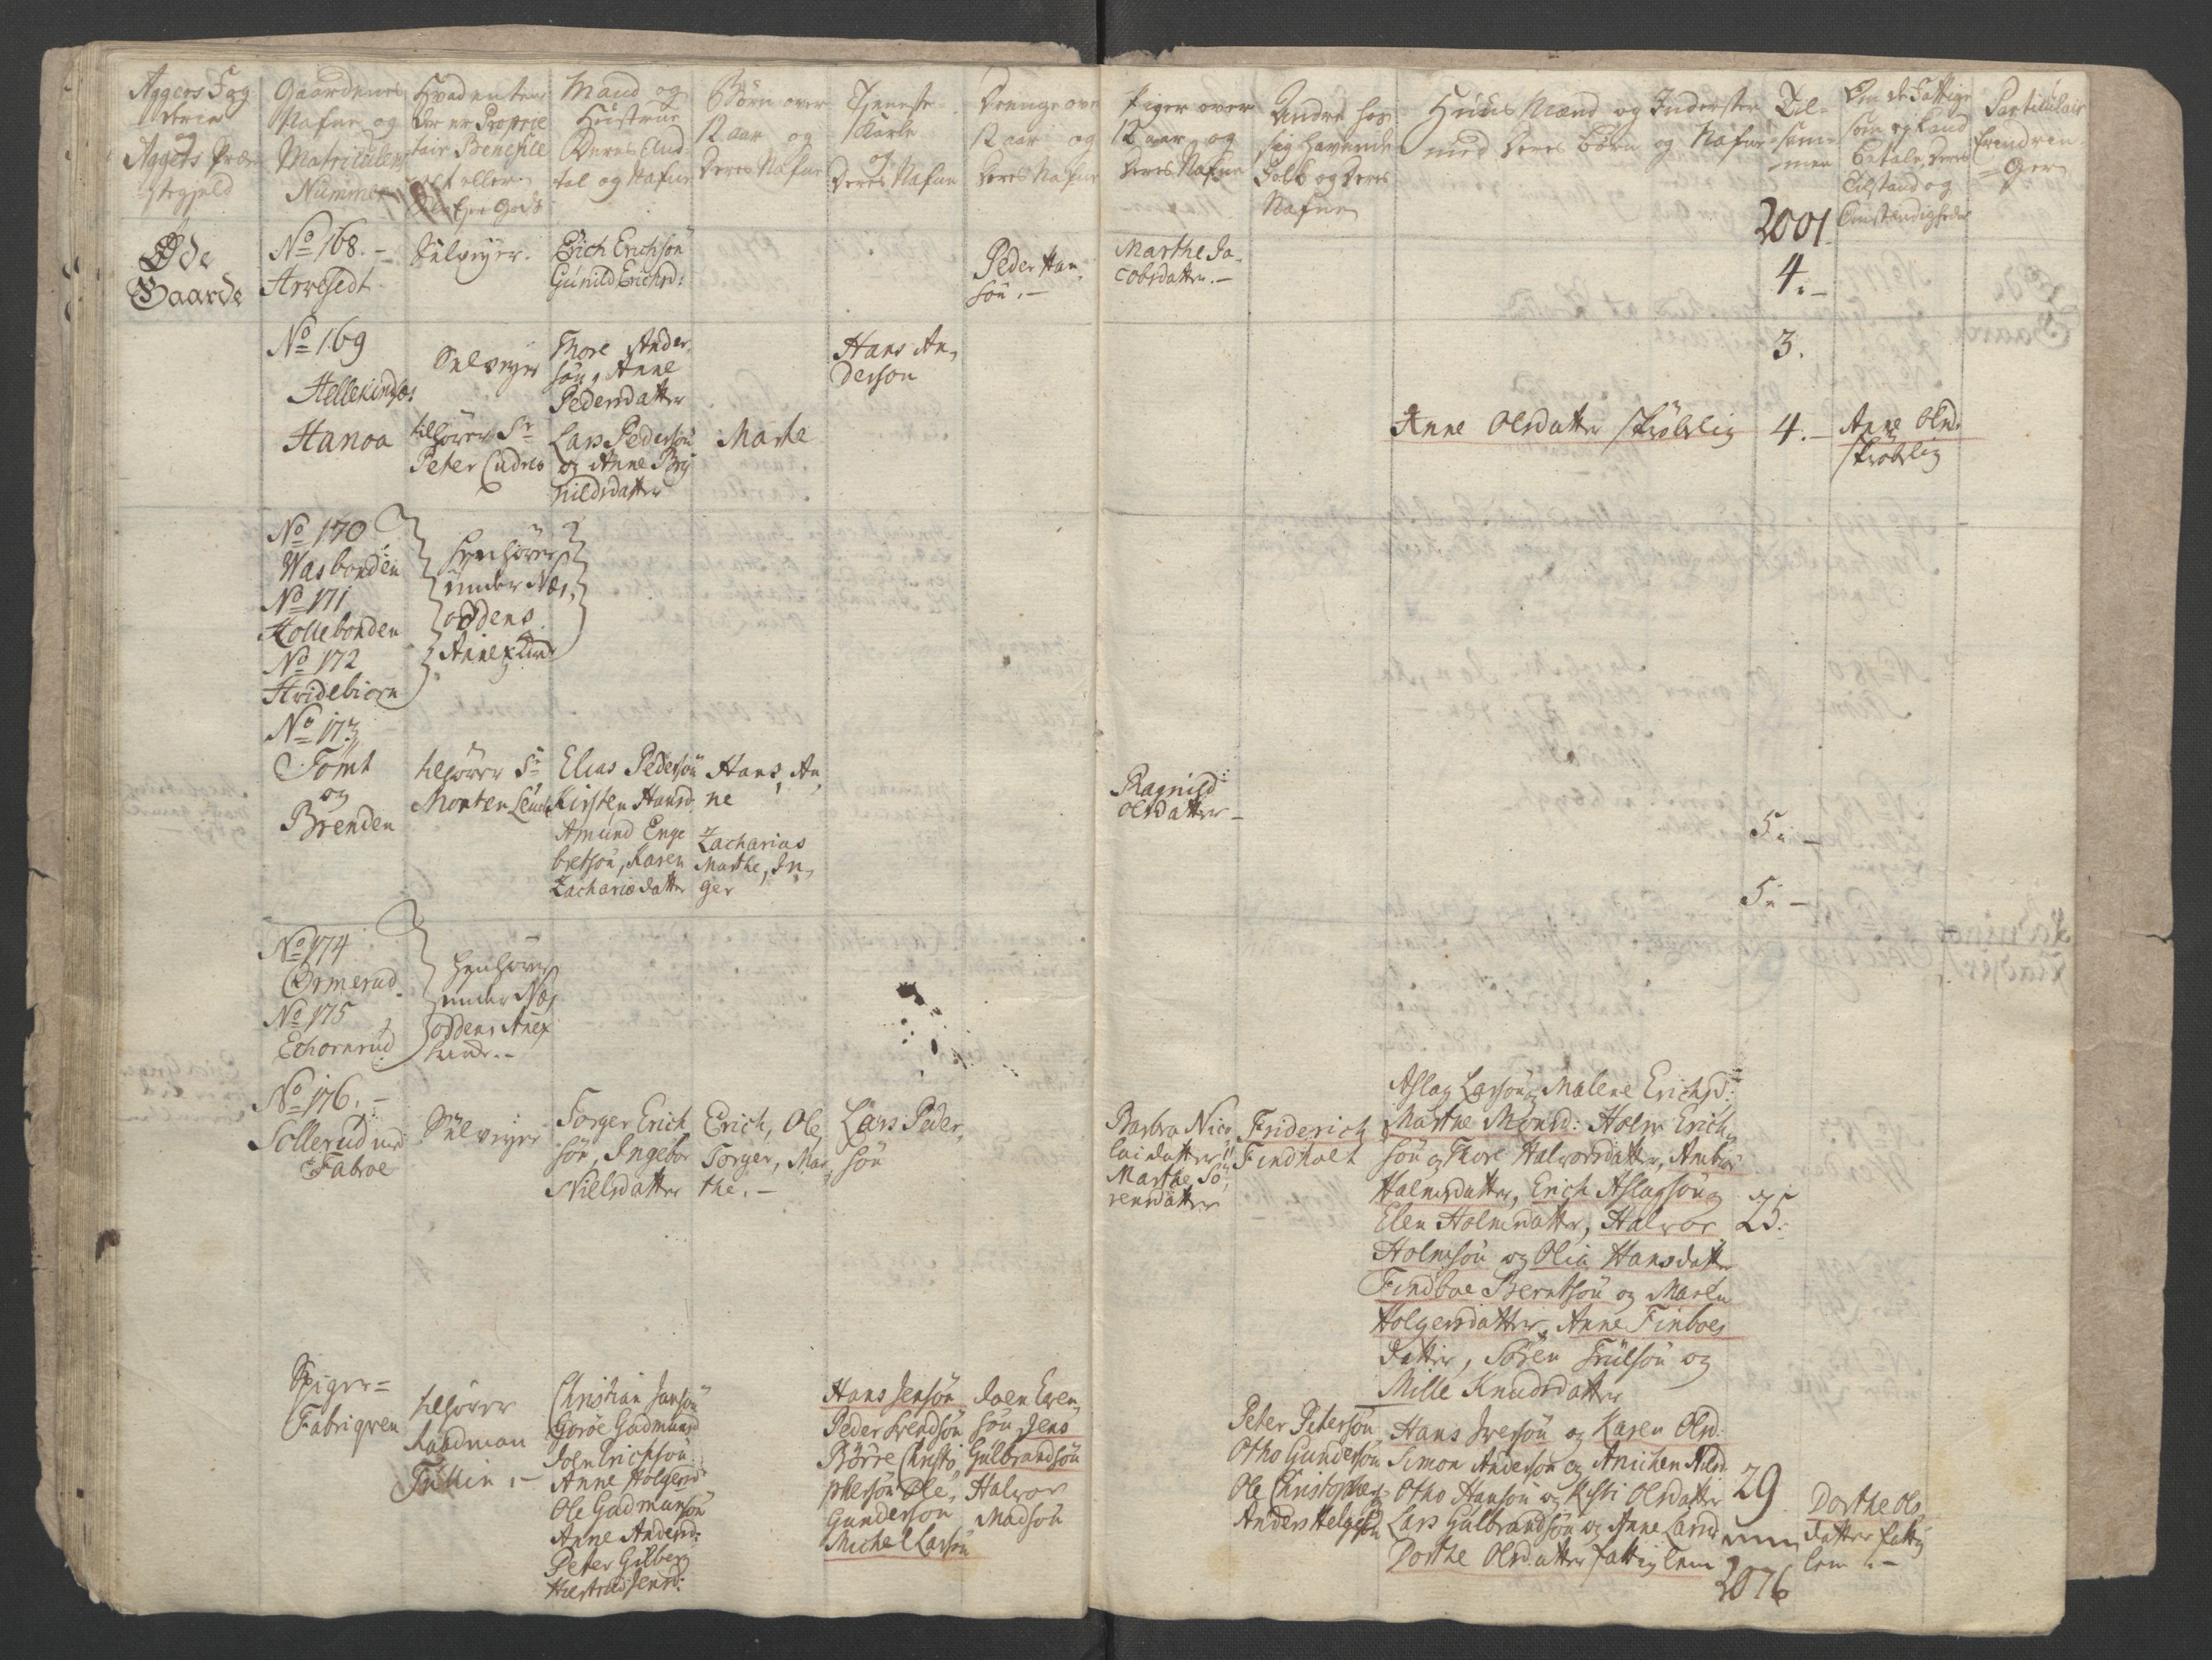 Aggers Fog
derie
og
Aggers Præ-
stegjeld
Gaardenes
Nafne og
Matriculens
Nummer
Hvad enten
der er Proprie
tair Benefice
eller
Selveyer Gods
Mand og
Hustrue
Deres And-
tal og Nafne
Børn over
12 aar og
Deres Nafne
Tjeneste
Karle
og
Deres Nafne
Drenge over
12 aar og
Deres Nafne
Piger over
12 aar og
Deres Nafne
Andre hos
sig havende
Folk og Deres
Nafne
Huus Mænd og Inderster
med Deres Børn og Nafne
Til-
sam-
men
Om de Fattige
som ej kand
Betale, Deres
Tilstand og
Omstændigheder
Particulair
Erindrin-
ger
2001
Øde
Gaarde
No 168.-
Arvesedt
Sælveyer.
Erich Erichsøn
Gunild Erichsd:
Peder Han-
søn.-
Marthe Ja-
cobsdatter.-
4.-
No 169
Hellekindsæs
Selveyer
Thore Ander-
søn, Anne
Pedersdatter
Hans An-
dersøn
3.
Hanoa
tilhører Sr
Peter
Lars Pedersøn
og Anne Bry
nildsdatter
Marte
Anne Olsdatter skrøbelig
4.-
Anne Olsd.
skrøbelig
No 170
Wasbonden
No 171
Kollebonden
No 172
Hvidebiørn
henhører
under Næs-
oddens
Annex
No 173
Tømt
og
Brenden
tilhører Sr
Morten Leuch
Elias Pedersøn
Kirsten Hansd.
Amund Enge
bretsøn, Karen
Zachariædatter
Hans, An-
ne
Zacharias
Marthe, In-
ger
Ragnild
Olsdatter-
5.-
5.-
No 174
Ormerud
No 175
Echornrud
henhører
under Næs
oddens Anex
No 176.-
Sollerud med
Fabroe
Sælveyer
Torger Erich
søn, Ingebor
Nielsdatter
Erich, Ole,
Torger, Mar-
the.-
Lars Peder-
søn
Barbra Nico
laidatter
Marthe Sø-
rensdatter
Friderich
Findholt
Aslag Larsøn og Malene Erichsd:
Marthe Monsd: Holm Erich-
søn og Thore Halvorsdatter, Ambiør
Holmsdatter, Erich Aslagsøn og
Elen Holmsdatter, Halvor
Holmsøn og Olia Hansdatter
Findboe Berntsøn og Maren
Holgersdatter, Anne Finboes
datter, Søren Truelsøn og
Mille Knudsdatter
25.
Spiger=
Fabriqven
tilhører
Raadman
Tullin.-
Christian Jansøn
Goroe Gudmunsd
Joen Erichsøn
Anne Holgersd
Ole Gudmunsøn
Anne Andersd:
Peter Gilberg
Jensd:
Hans Jensøn
Peder Svendsøn
Børre Christo
phersøn Ole
Gundersøn
Michel Larsøn
Joen Even-
søn Jens
Gulbrandsøn
Halvor
Madsøn
Peter Petersøn
Otho Gundersøn
Ole Christophers
Anders Helgesøn
Hans Iversøn og Karen Olsd.
Simon Andersøn og Anichen Nilsd
Otho Hansøn og Kisti Olsdatter
Lars Gulbrandsøn og Anne Larsd
Dorthe Olsdatter fattig lem
29
Dorthe Ols
datter fattig
lem.-
2076